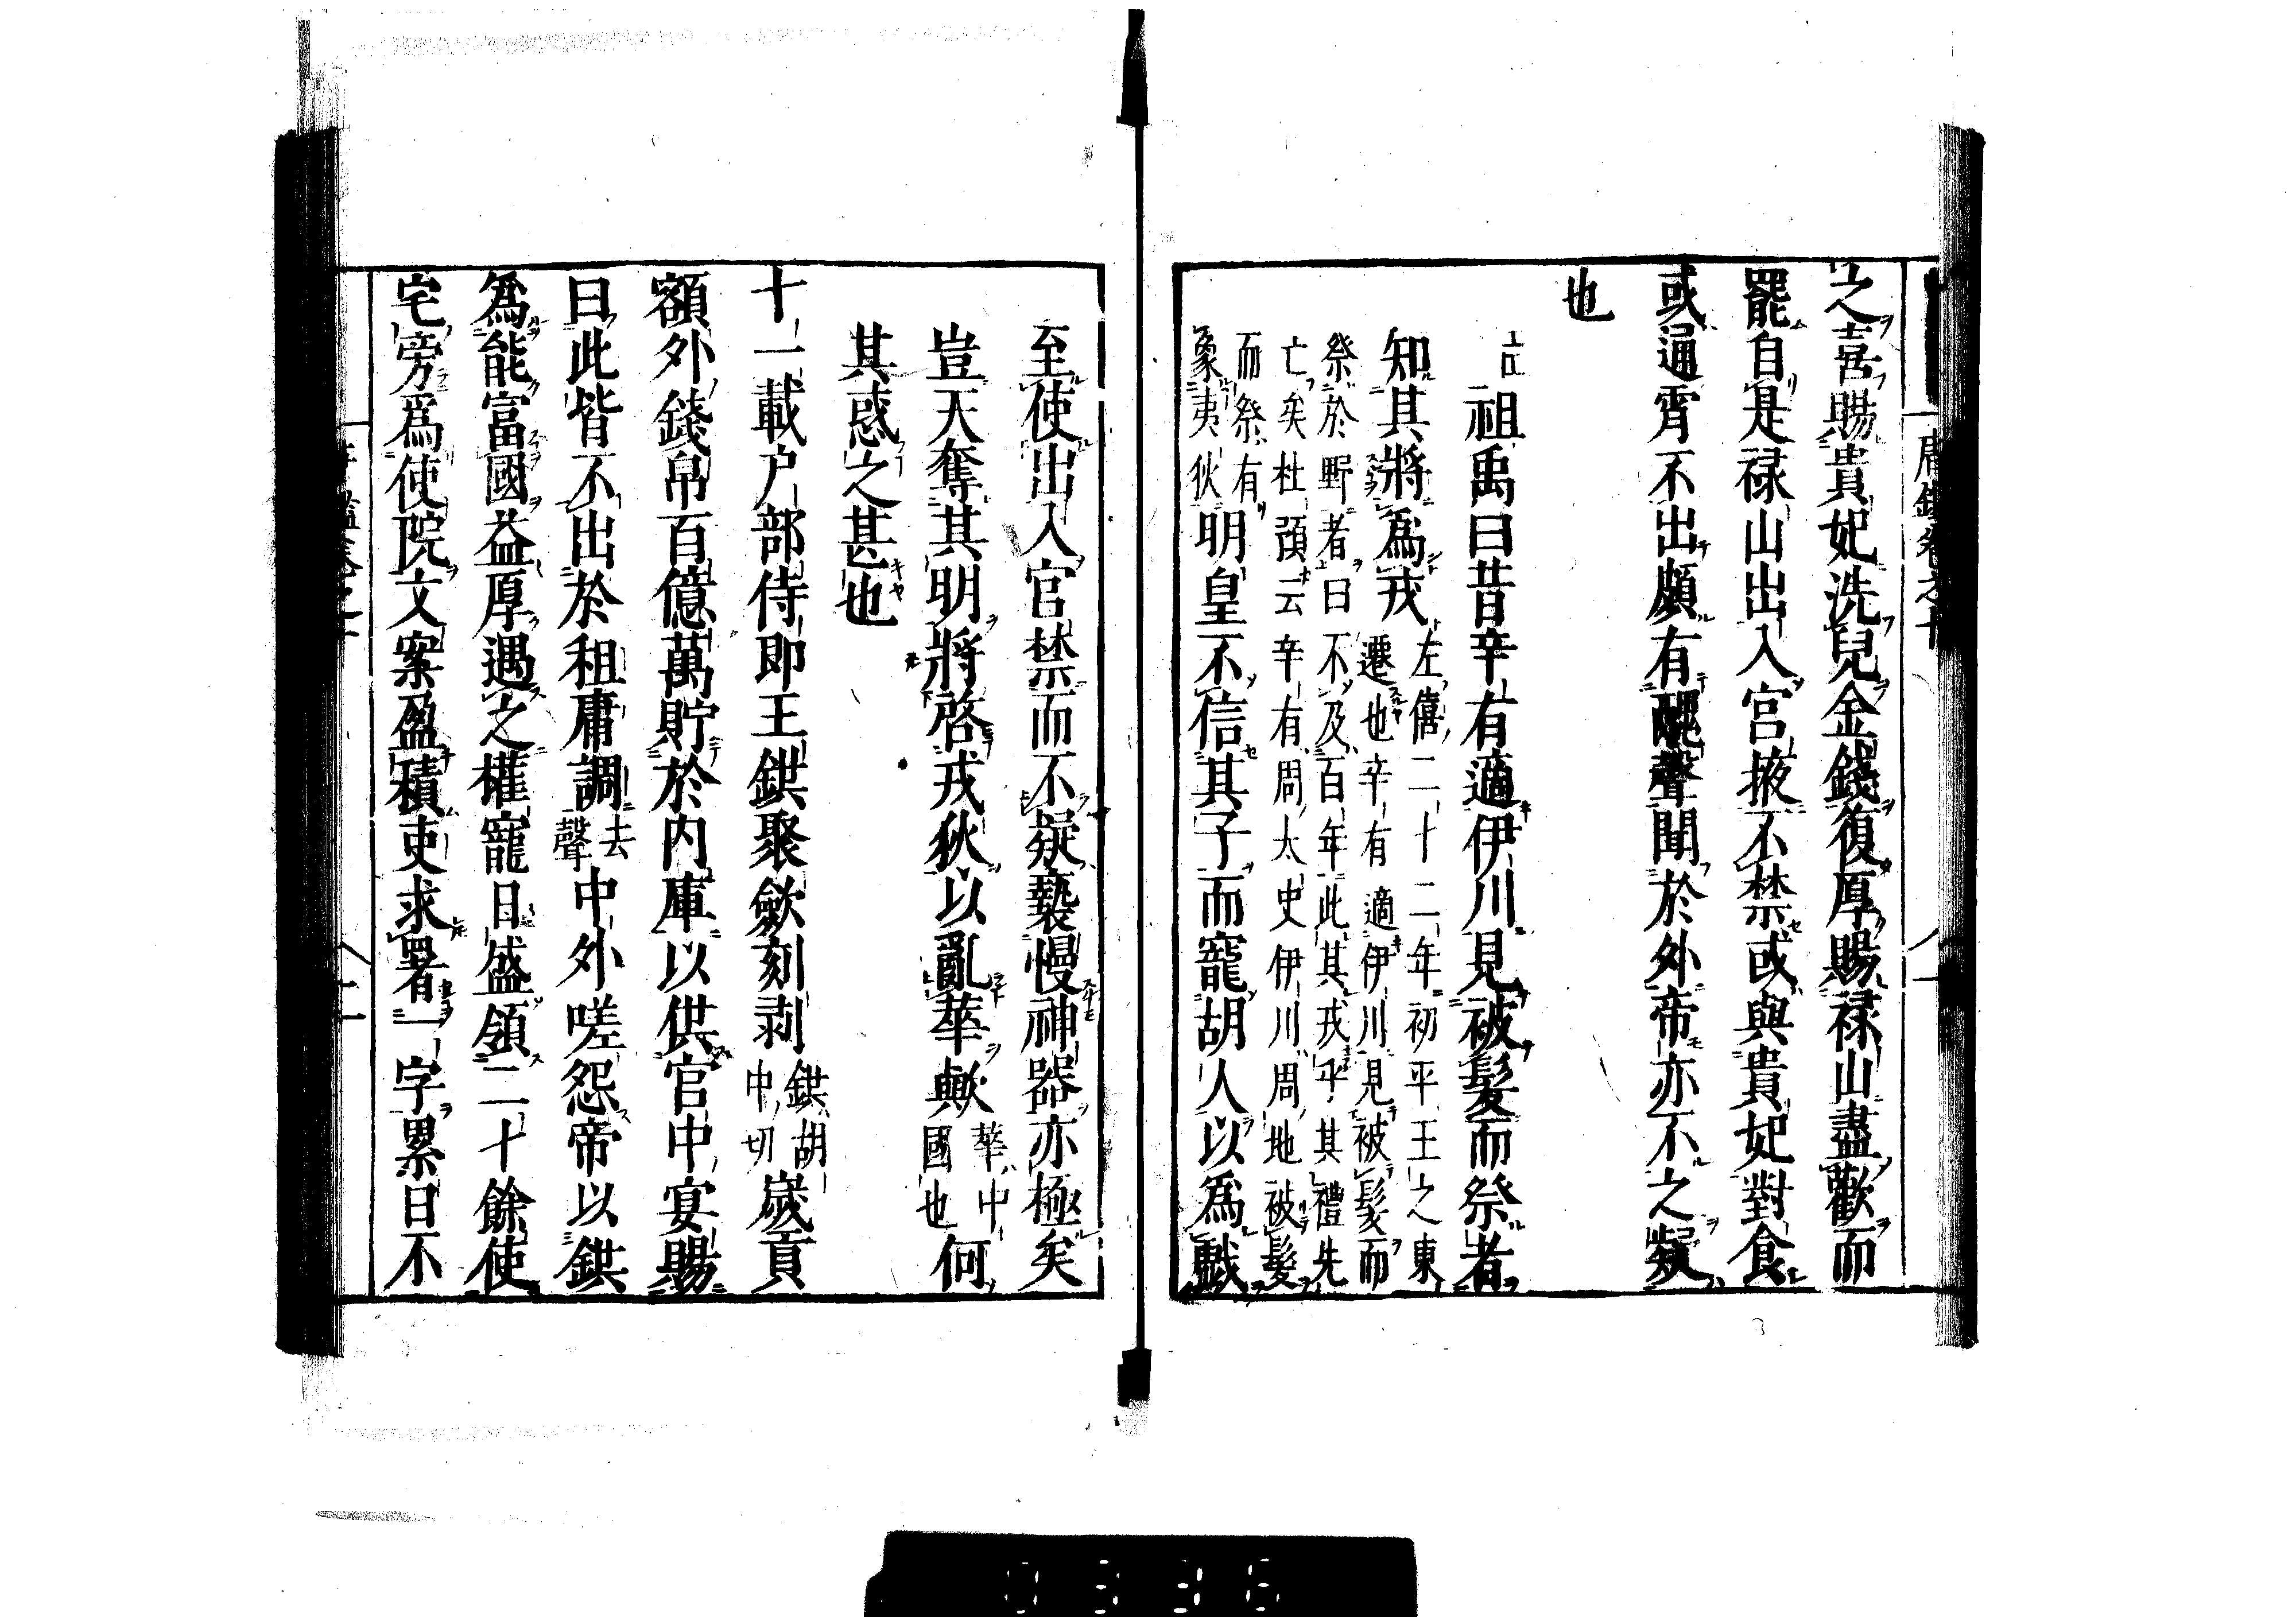 唐鑑卷之十
之喜賜貴妃洗兒金錢復厚賜祿山盡歡而
罷自是祿山出入宮掖不禁或與貴妃對食
或通霄不出頗有醜聲聞於外帝亦不之疑
也
祖禹曰昔辛有適伊川見被髮而祭者
知其將爲戎左僖二十二年初平王之東遷也辛有適伊川見被髮而
祭於野者曰不及百年此其戎乎其禮先亡矣杜預云辛有周太史伊川周地被髮
而祭有象夷狄明皇不信其子而寵胡人以爲戲
至使出入宮禁而不疑褻慢神器亦極矣
豈天奪其明將啓戎狄以亂華歟華中國也何
其惑之甚也
十一載户部侍郎王鉷聚歛刻剥鉷胡中切歲貢
額外錢帛百億萬貯於内庫以供宮中宴賜
曰此皆不出於租庸調去聲中外嗟怨帝以鉷
爲能富國益厚遇之權寵日盛領二十餘使
宅旁爲使院文案盈積吏求署一字累日不